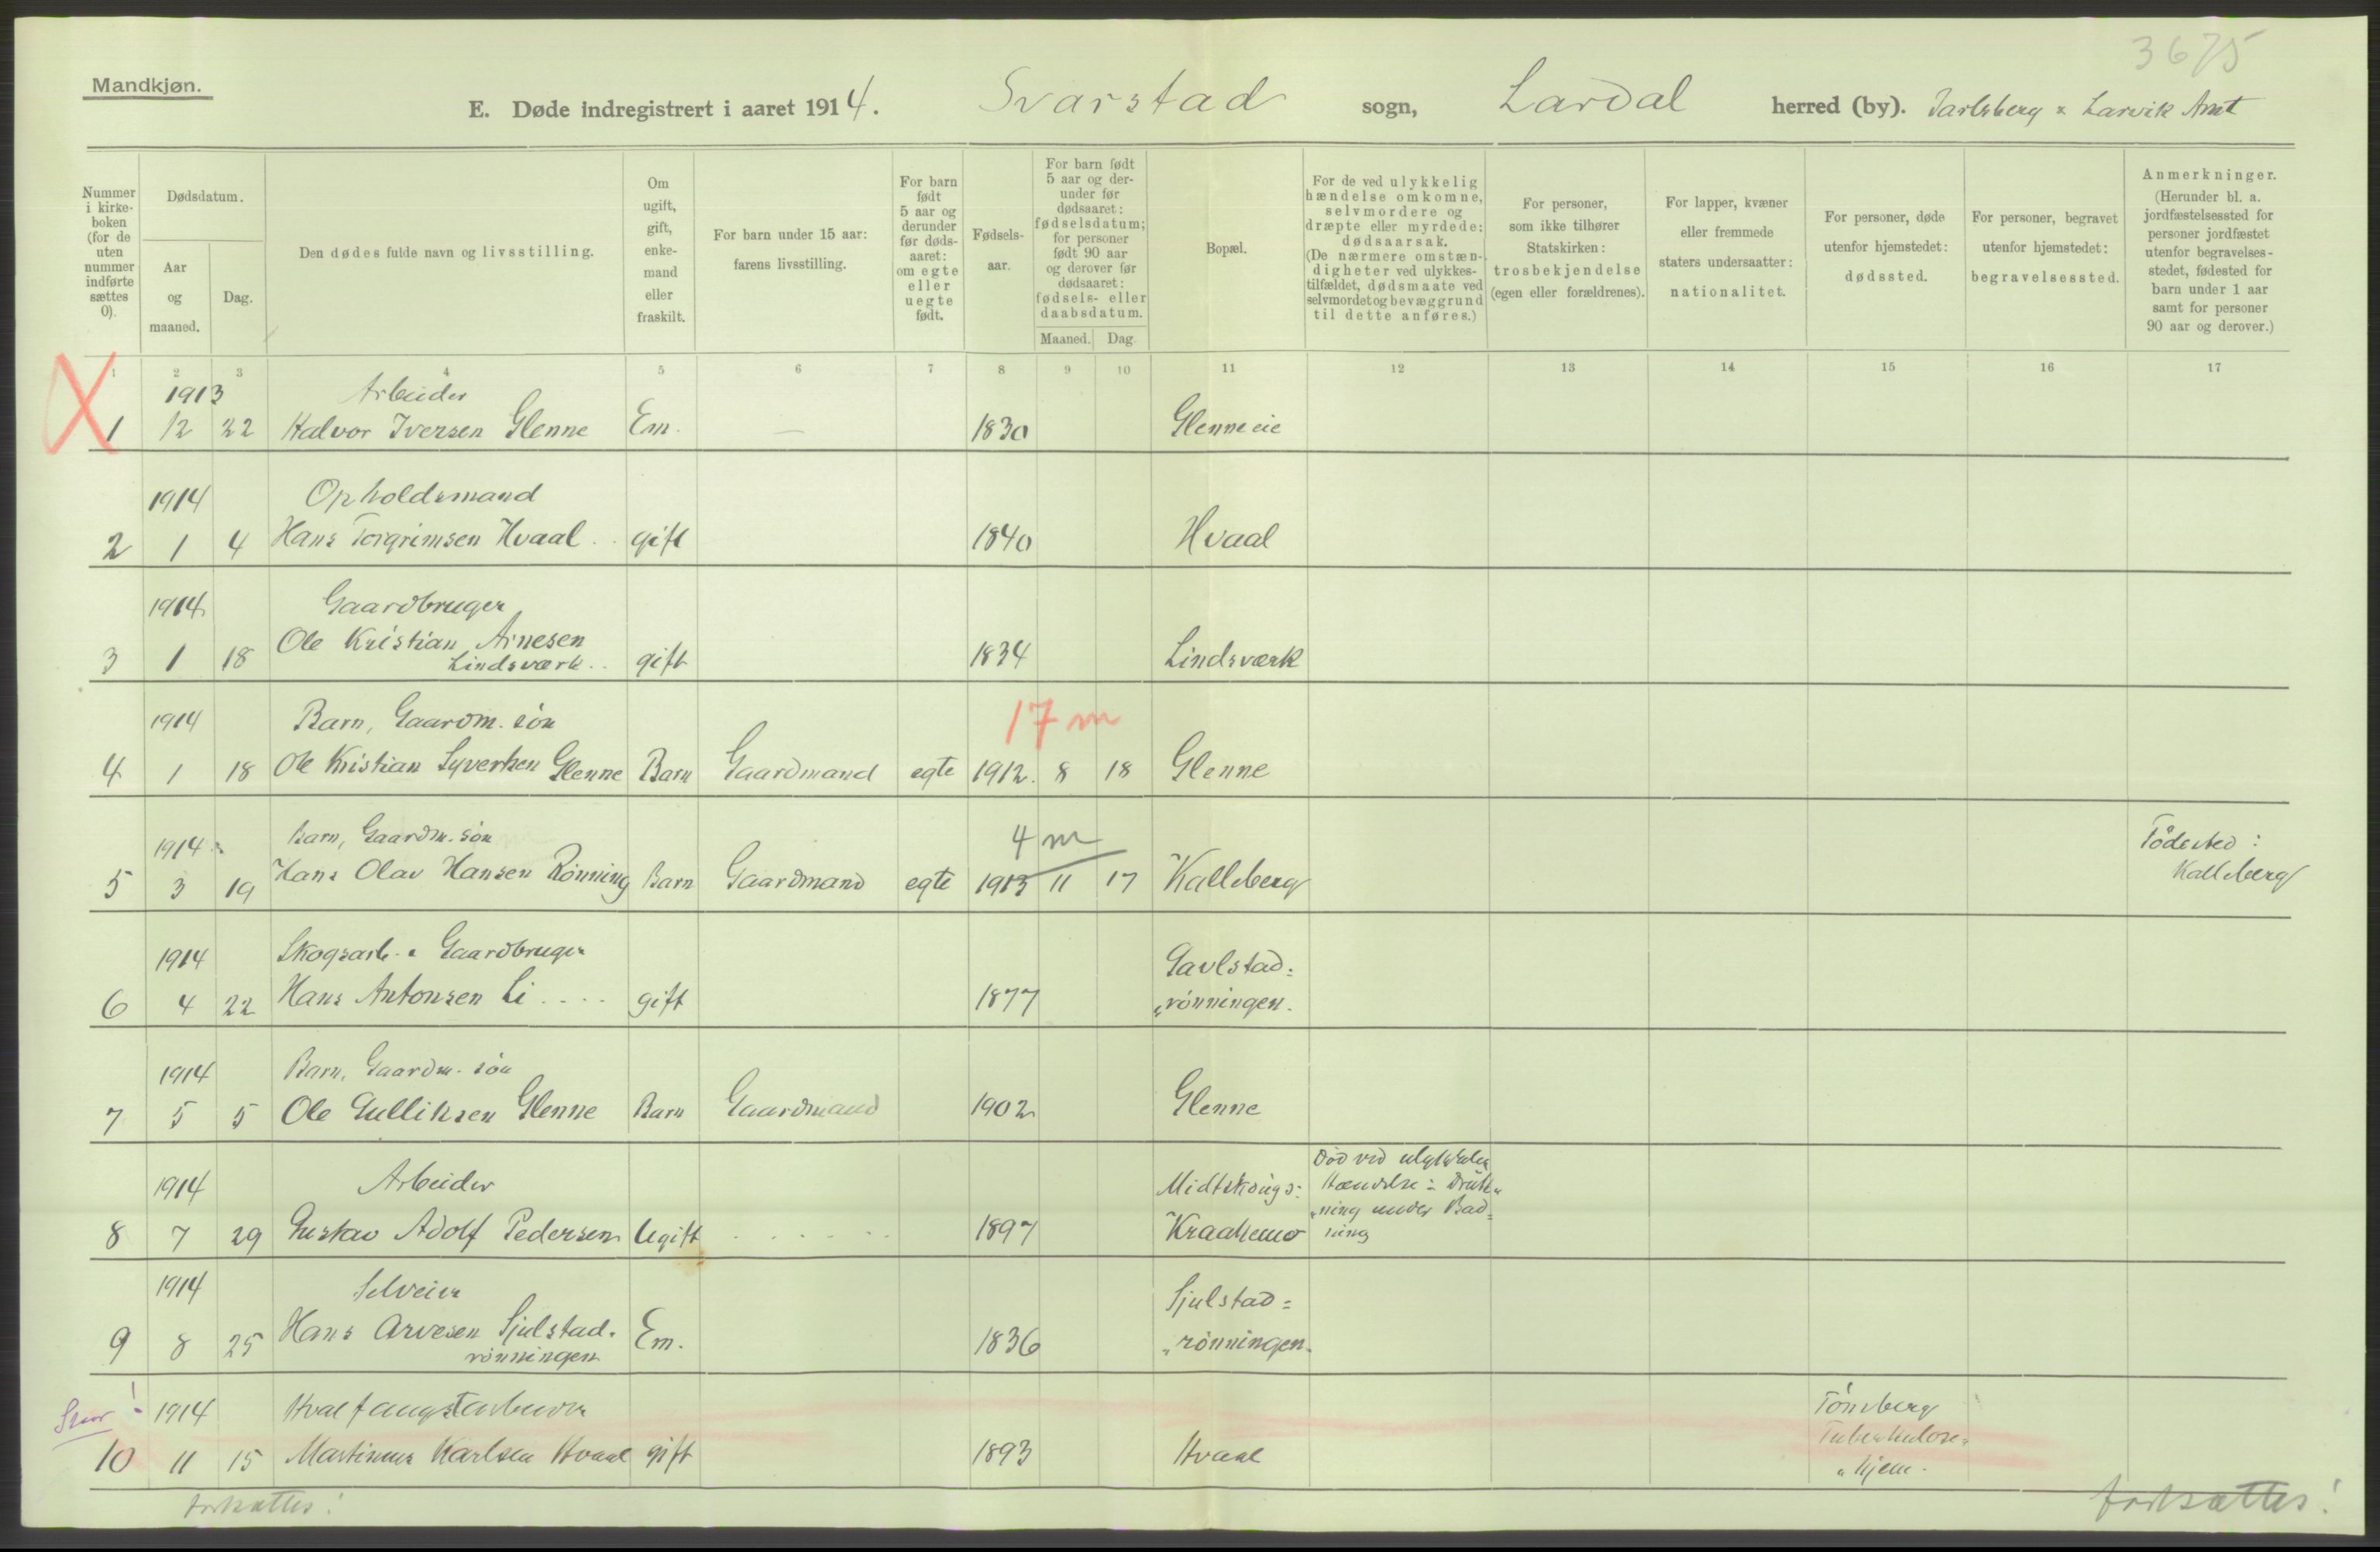 3675
Mandkjøn.
E. Døde indregistrert i aaret 1914. Svarstad sogn, Lardal herred (by). Jarlsberg & Larvik Amt
Nummer i kirke-boken (for de uten nummer indførte sættes 0).
Dødsdatum.
Aar og maaned.
Dag.
Den dødes fulde navn og livsstilling.
Om ugift, gift, enke-mand eller fraskilt.
For barn under 15 aar: farens livsstilling.
For barn født 5 aar og derunder før døds-aaret: om egte eller uegte født.
Fødsels-aar.
For barn født 5 aar og der-under før dødsaaret: fødselsdatum; for personer født 90 aar og derover før dødsaaret: fødsels- eller daabsdatum.
Maaned. Dag
Bopæl.
For de ved ulykkelig hændelse omkomne, selvmordere og dræpte eller myrdede: dødsaarsak. (De nærmere omstæn-digheter ved ulykkes-tilfældet, dødsmaate ved selvmordet og bevæggrund til dette anføres.)
For personer, som ikke tilhører Statskirken: trosbekjendelse (egen eller forældrenes).
For lapper, kvæner eller fremmede staters undersaatter: nationalitet.
For personer, døde utenfor hjemstedet: dødssted.
For personer, begravet utenfor hjemstedet: begravelsessted.
Anmerkninger. (Herunder bl. a. jordfæstelsessted for personer jordfæstet utenfor begravelses-stedet, fødested for barn under 1 aar samt for personer 90 aar og derover.)
1 2 3 4 5 6 7 8 9 10 11 12 13 14 15 16 17
1913 Arbeider
1 12 22 Halvor Iversen Glenne Em. — 1830 Glenneeie
1914 Opholdsmand
2 1 4 Hans Torgrimsen Hvaal gift 1840 Hvaal
1914 Gaardbruger
Ole Kristian Arnesen
3 1 18 Lindsværk gift 1834 Lindsværk
1914 Barn, Gaardm. søn 17 m
4 1 18 Ole Kristian Syvertsen Glenne Barn Gaardmand egte 1912 8 18 Glenne
1914 Barn, Gaardm. søn 4 m Födested:
5 3 19 Hans Olav Hansen Rönning Barn Gaardmand egte 1913 11 17 Kalleberg Kalleberg
1914 Skogsarb. & Gaardbruger Gavlstad=
6 4 22 Hans Antonsen Li gift 1877 „rönningen.
1914 Barn, Gaardm. søn
7 5 5 Ole Gulliksen Glenne Barn Gaardmand 1902 Glenne
1914 Arbeider Midtskougs= Död ved ulykkelig
Hændelse: Druk=
„ning under Bad=
8 7 29 Gustav Adolf Pedersen Ugift 1897 Kraakemo ning
1914 Selveier Sjulstad=
9 8 25 Hans Arvesen Sjulstad- Em. 1836 „rönningen.
rönningen
1914 Hvalfangstarbeider Tönsberg
10 11 15 Martinius Karlsen Hvaal gift 1893 Hvaal Tuberkulose=
„hjem.
forsættes! forsættes!